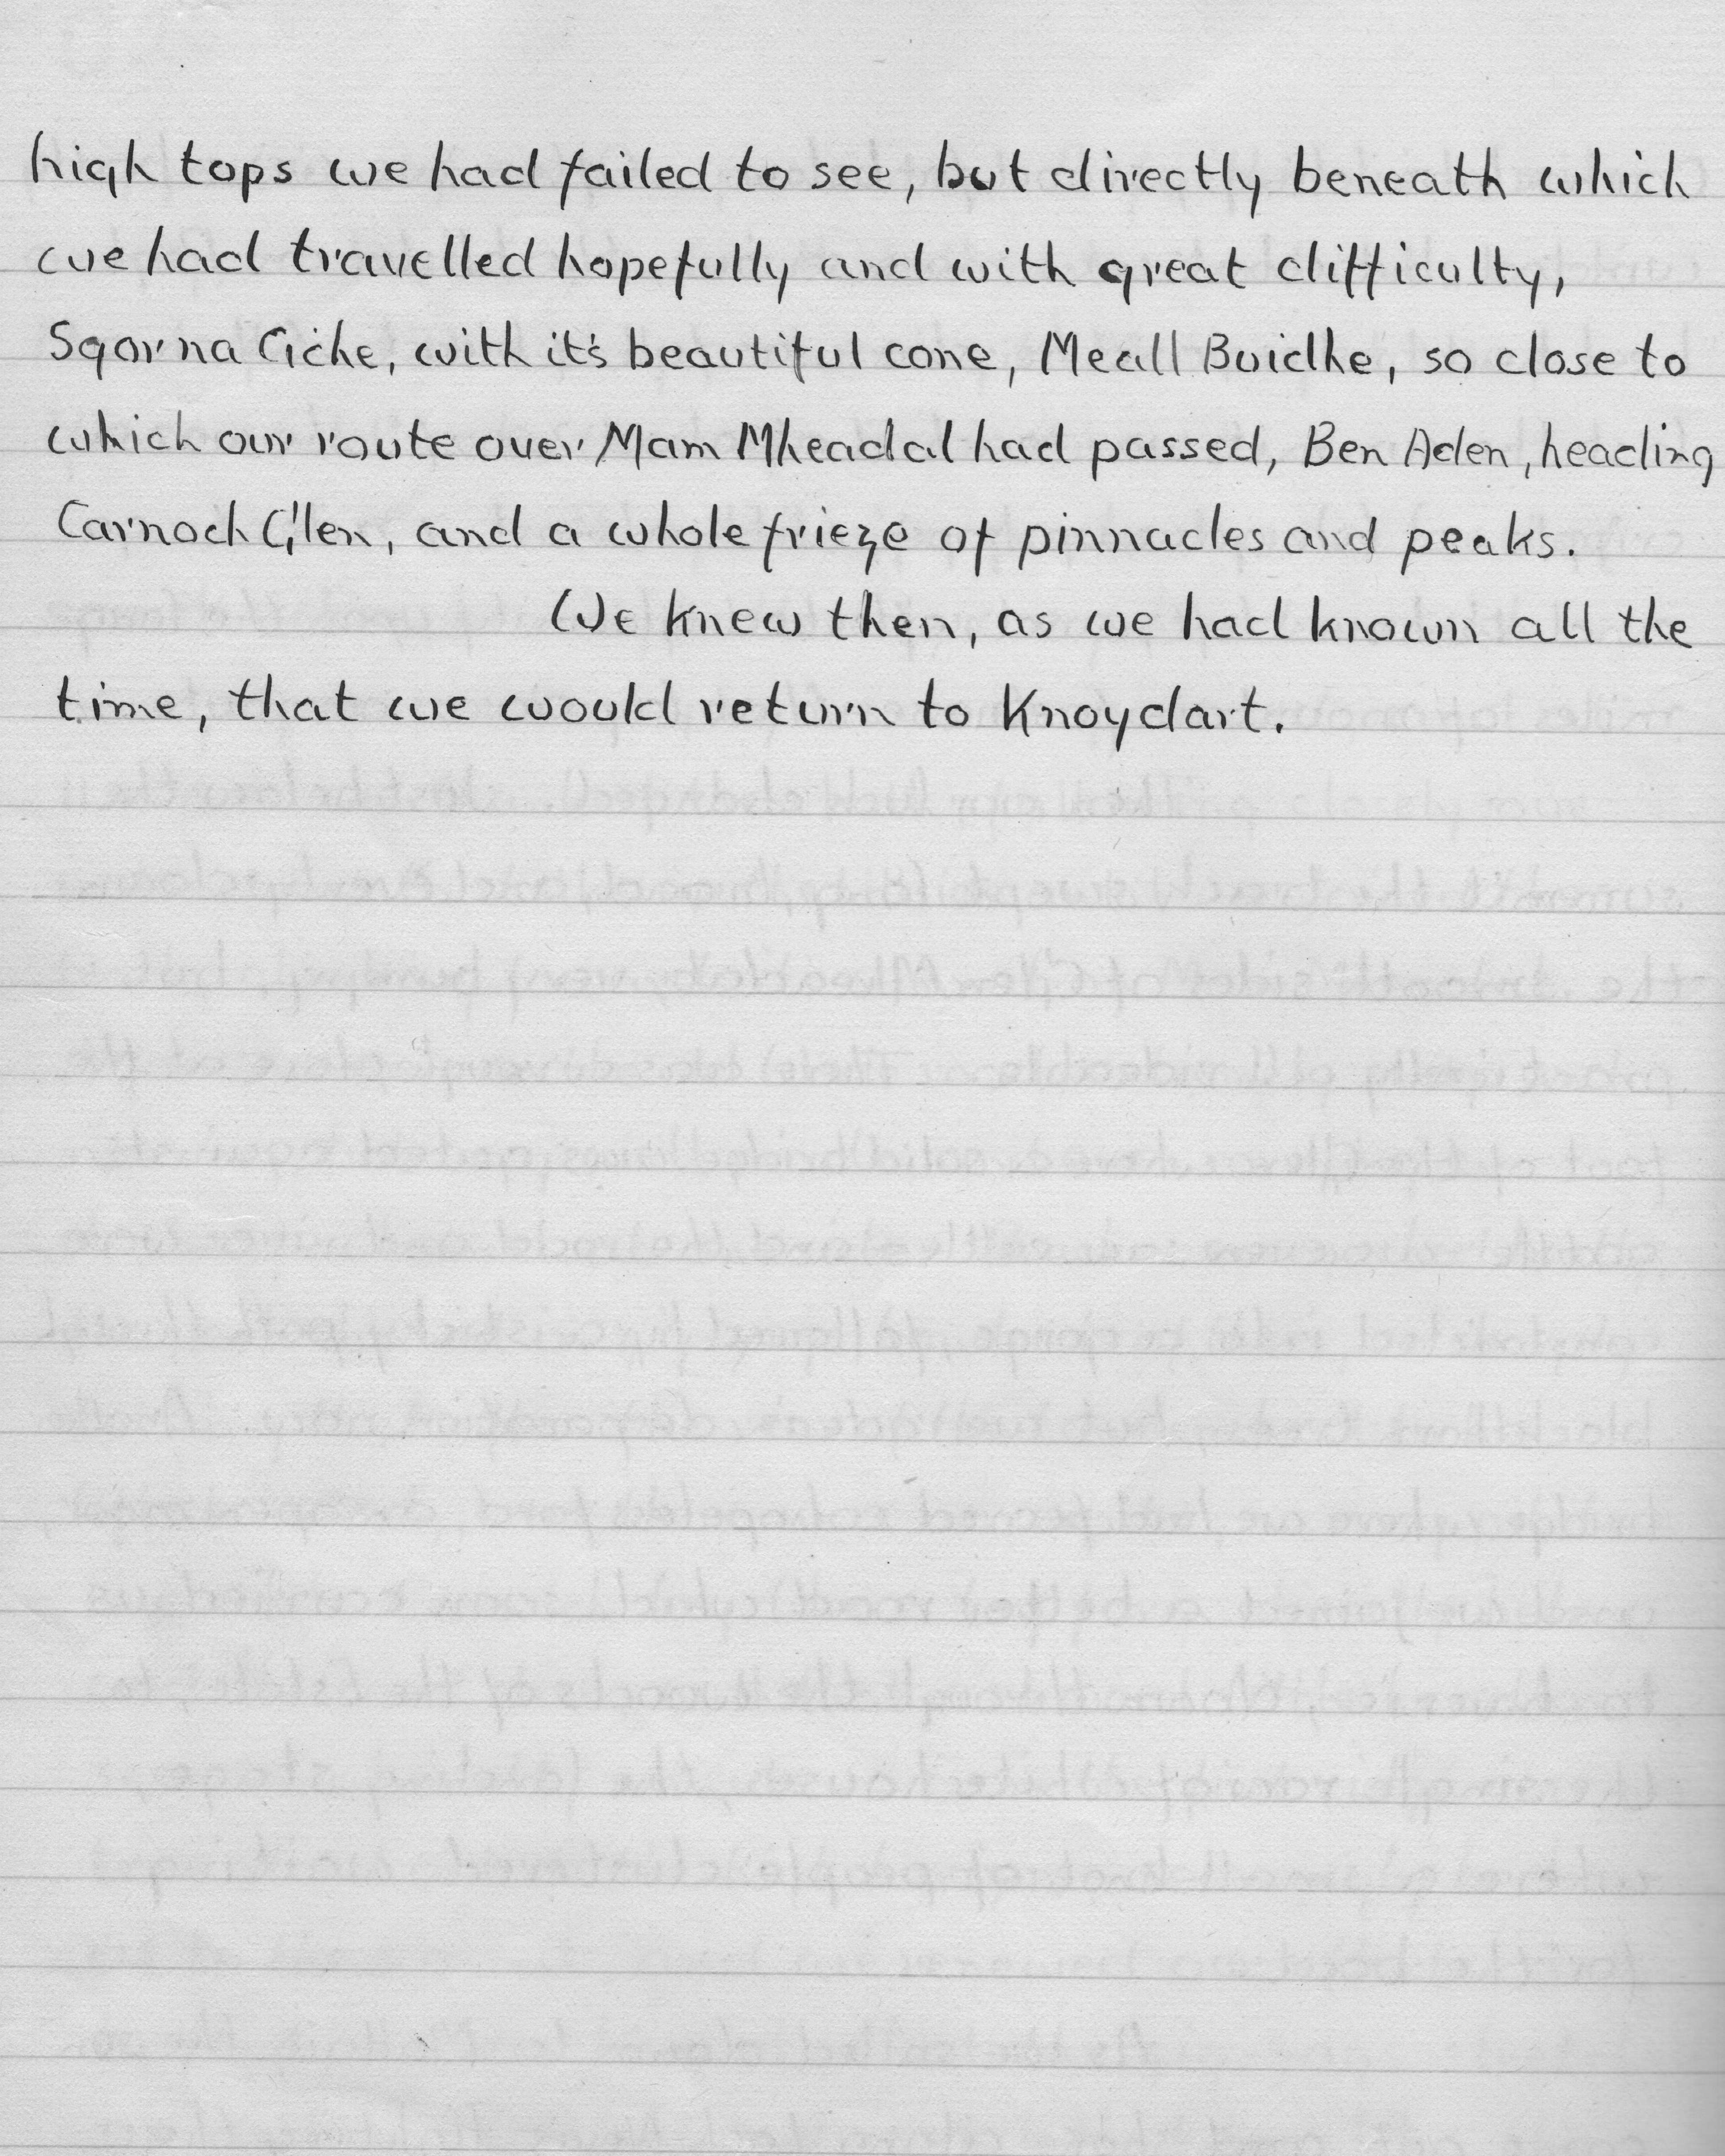 high tops we had failed to see, but directly beneath which
we had travelled hopefully and with great difficulty,
Sgor na Ciche, with it's beautiful cone, Meall Buidhe, so close to
which our route over Mam Mheadal had passed, Ben Aden, heading
Carnoch Glen, and a whole frieze of pinnacles and peaks.
We knew then, as we had known all the
time, that we would return to Knoydart.